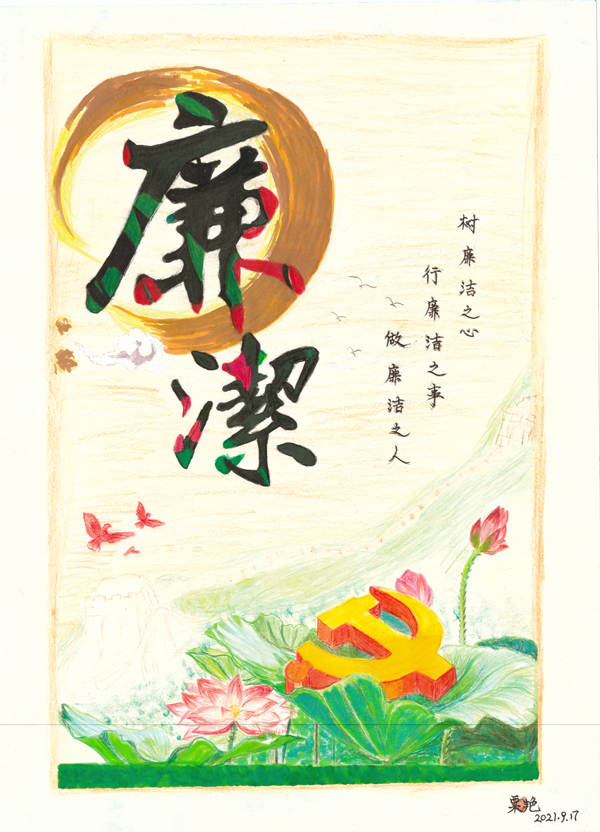 廉
潔
树廉洁之心
行廉洁之事
做廉洁之人
粟艳
2021.9.17